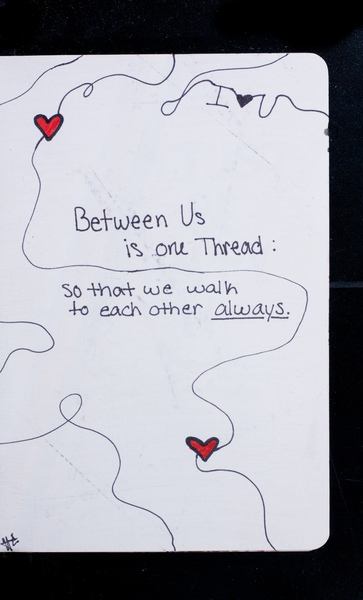 I ♥ U
Between Us
is one Thread :
so that we walk
to each other always.